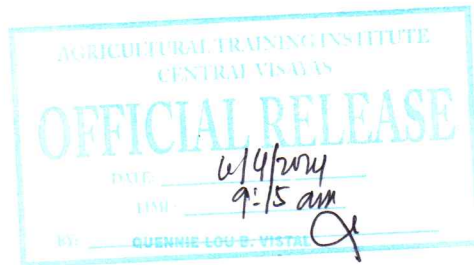 AGRICULTURAL TRAINING INSTITUTE
CENTRAL VISAYAS
OFFICIAL RELEASE
DATE: 6/4/2024
TIME: 9:15 am
BY: QUENNIE LOU B. VISTAL